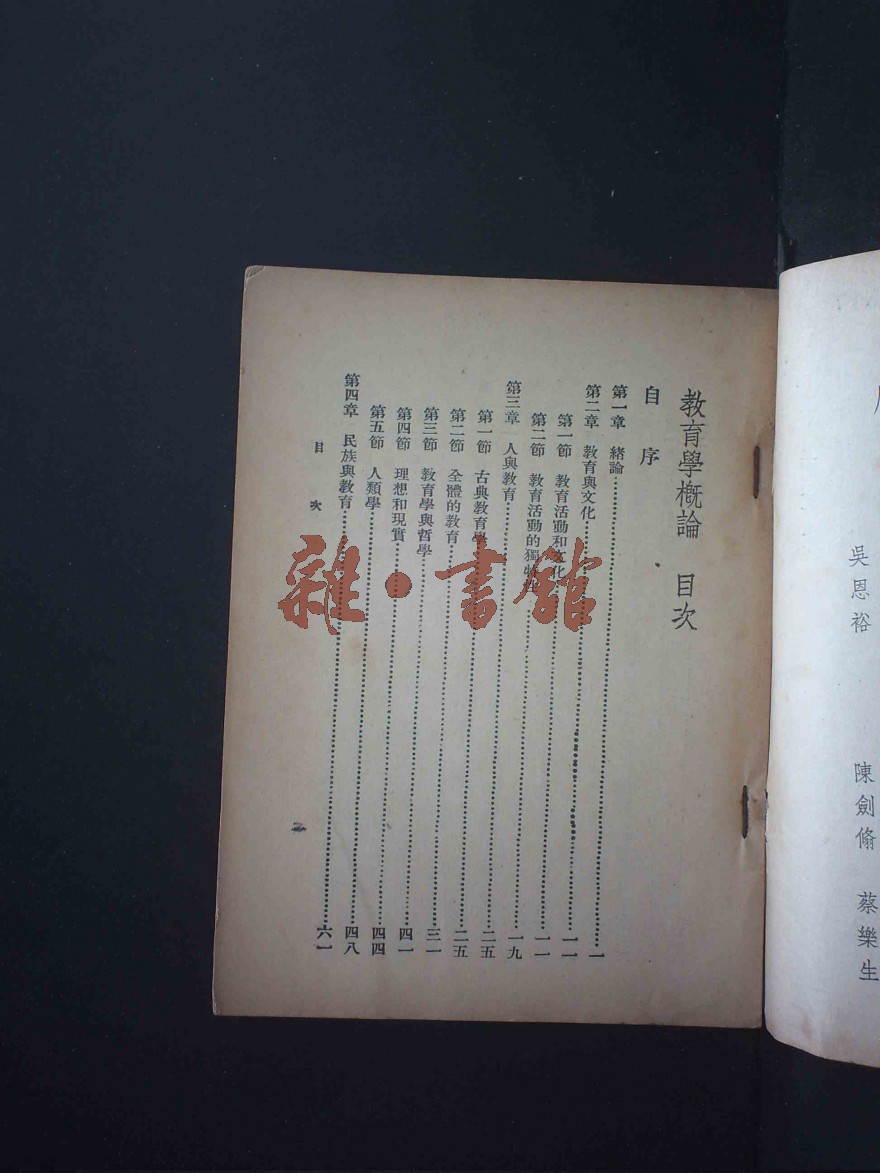 吳恩裕 陳劍脩 蔡樂生
教育學概論 目次
自序
第一章 緒論……一
第二章 教育與文化……一一
第一節 教育活動和文化……一一
第二節 教育活動的獨特性……一九
第三章 人與教育……二五
第一節 古典教育學……二五
第二節 全體的教育……三一
第三節 教育學與哲學……四一
第四節 理想和現實……四四
第五節 人類學……四八
第四章 民族與教育……六一
目次
雜·書館